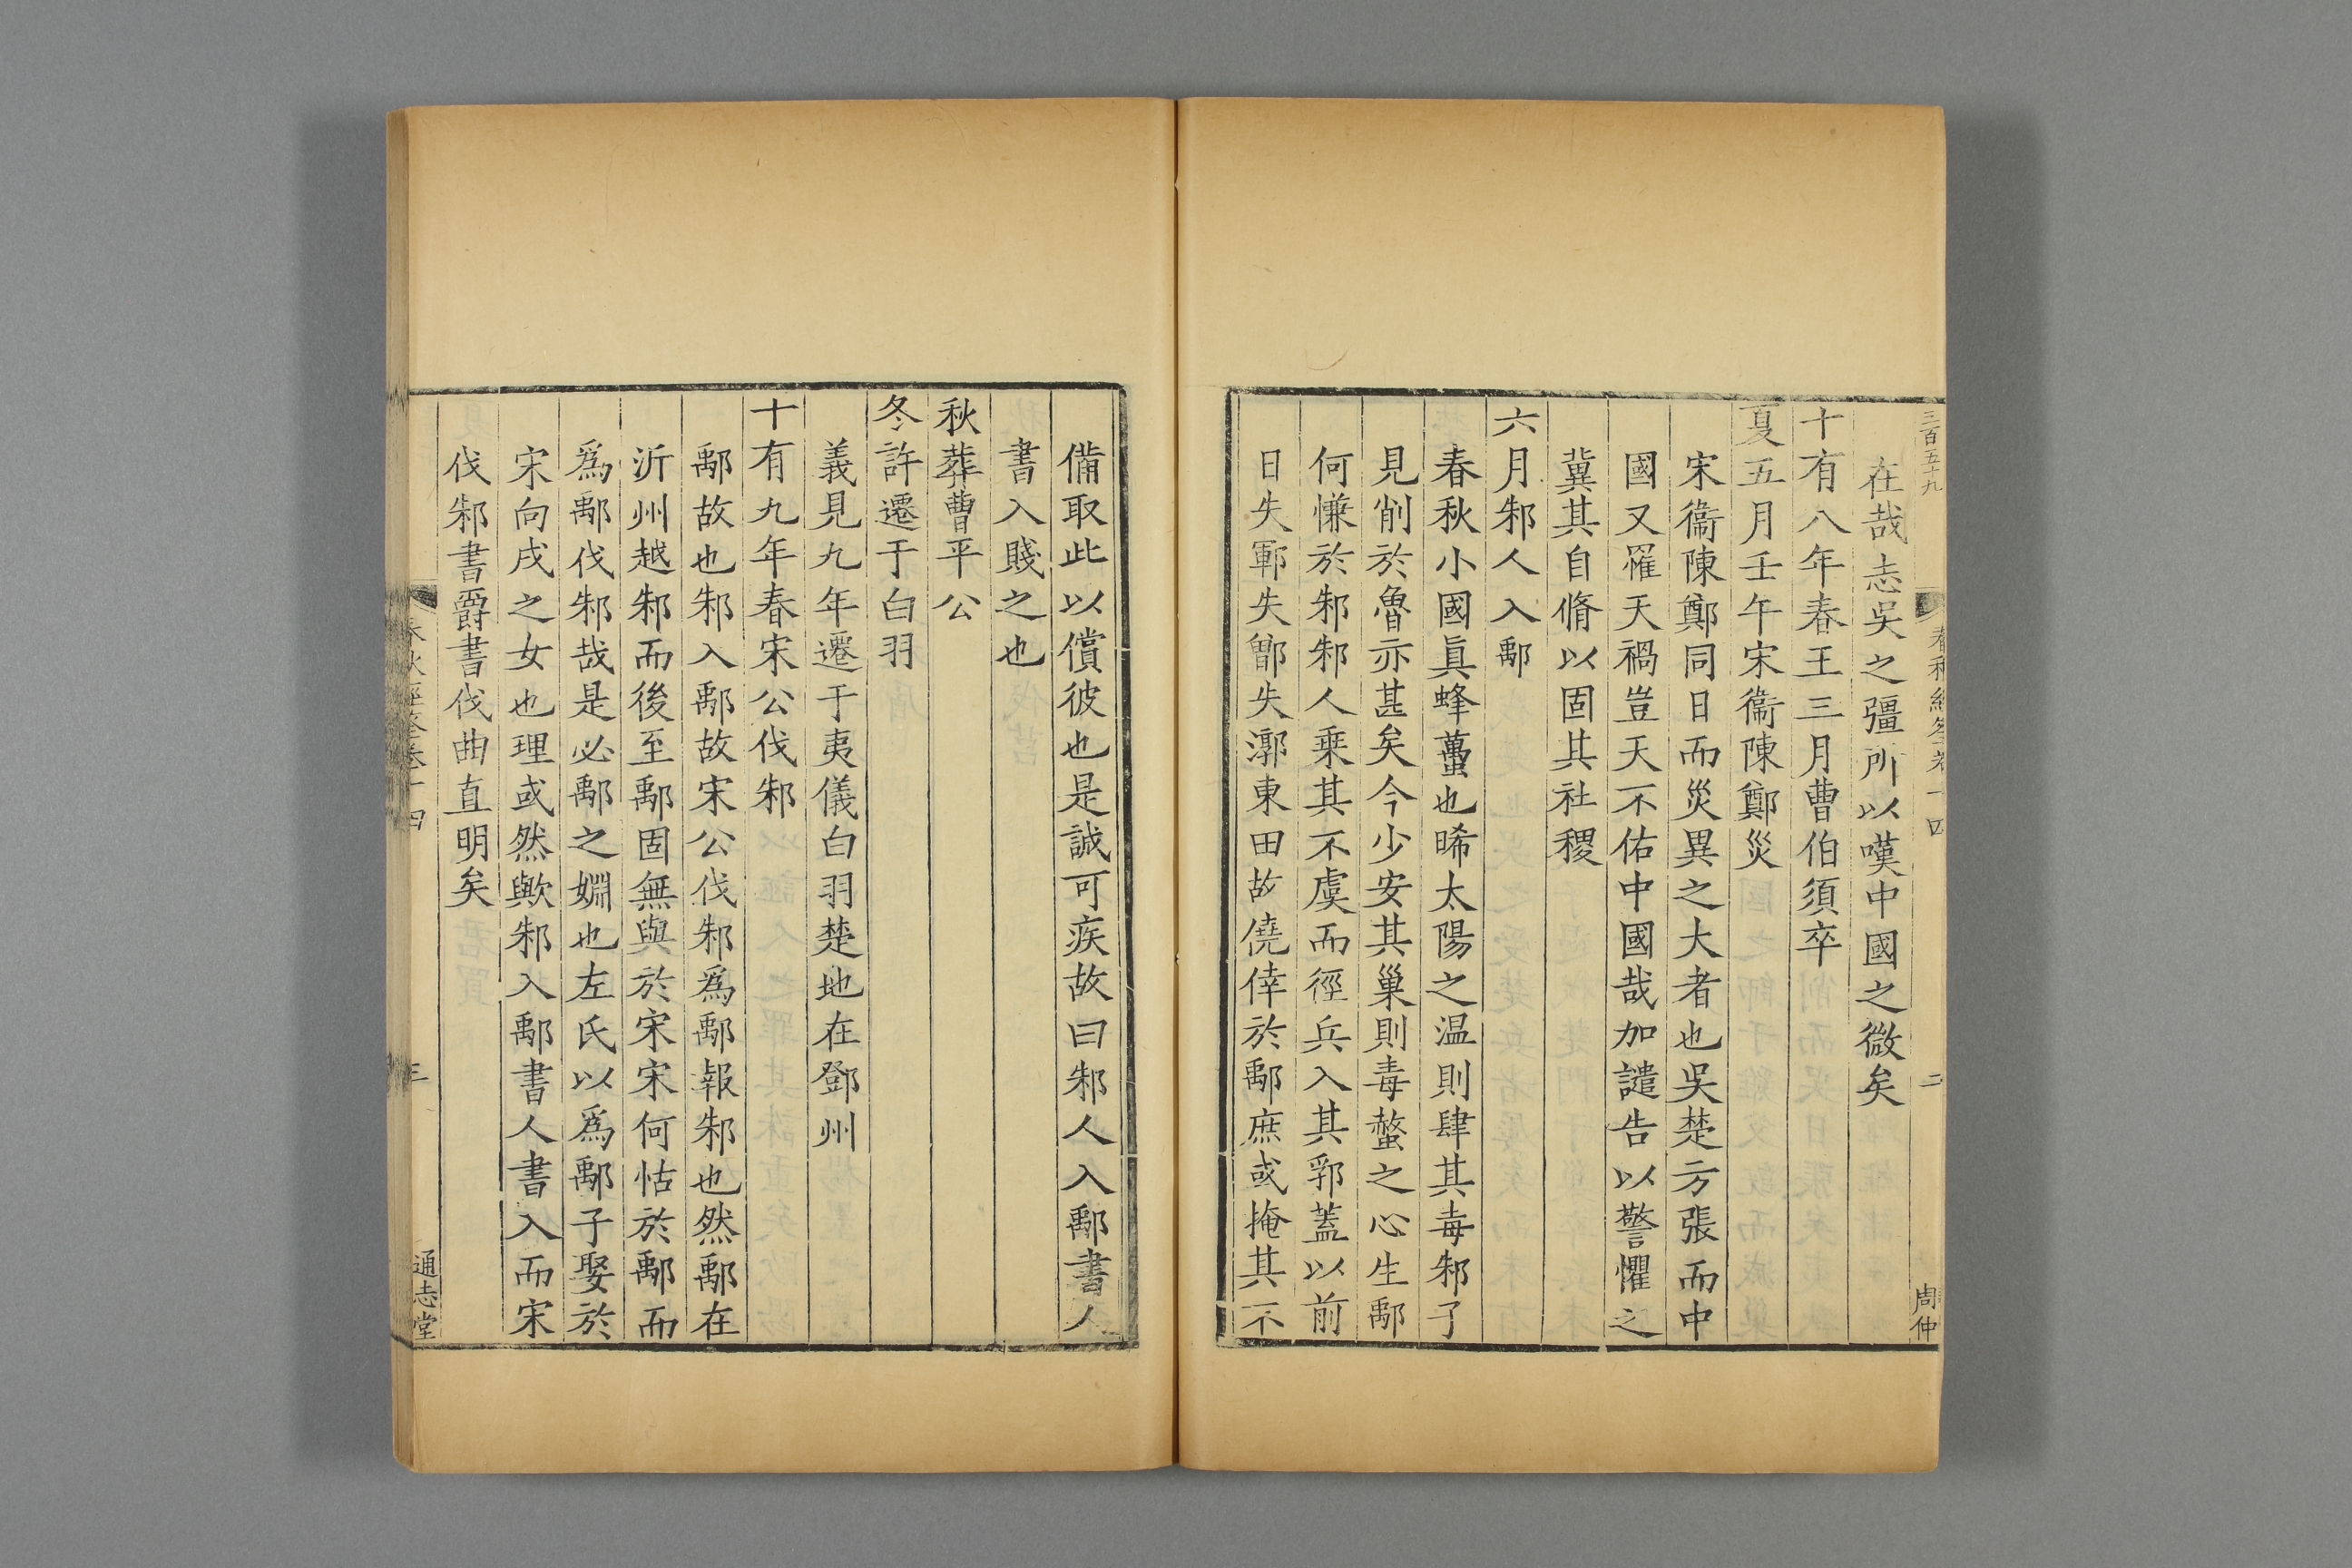 三百五十九
春秋經筌卷十四
二
周仲
在哉志吳之彊所以嘆中國之微矣
十有八年春王三月曹伯須卒
夏五月壬午宋衞陳鄭災
宋衞陳鄭同日而災異之大者也吳楚方張而中
國又罹天禍豈天不佑中國哉加譴告以警懼之
冀其自脩以固其社稷
六月邾人入鄅
春秋小國眞蜂蠆也晞太陽之温則肆其毒邾了
見削於魯亦甚矣今少安其巢則毒螫之心生鄅
何慊於邾邾人乘其不虞而徑兵入其郛蓋以前
日失鄆失鄫失漷東田故僥倖於鄅庶或掩其不
備取此以償彼也是誠可疾故曰邾人入鄅書人
書入賤之也
秋葬曹平公
冬許遷于白羽
義見九年遷于夷儀白羽楚地在鄧州
十有九年春宋公伐邾
鄅故也邾入鄅故宋公伐邾爲鄅報邾也然鄅在
沂州越邾而後至鄅固無與於宋宋何怙於鄅而
爲鄅伐邾哉是必鄅之婣也左氏以爲鄅子娶於
宋向戌之女也理或然歟邾入鄅書人書入而宋
伐邾書爵書伐曲直明矣
春秋經筌卷十四
三
通志堂